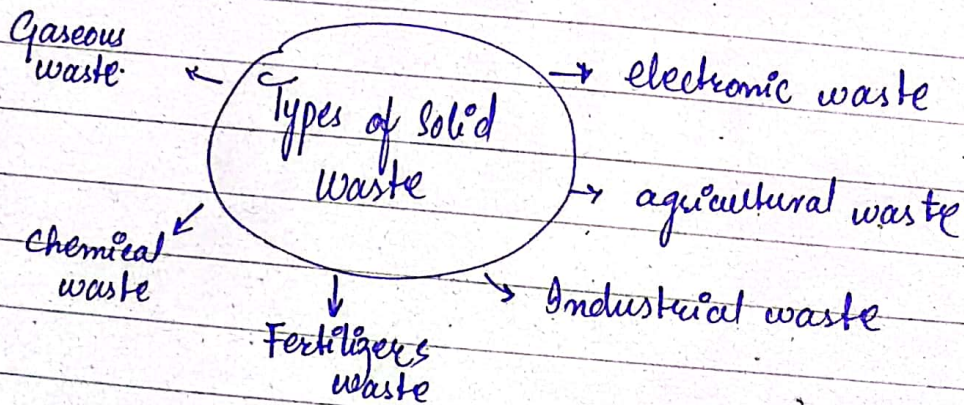 Gaseous
waste.
Types of Solid
Waste
electronic waste
agricultural waste
Industrial waste
Fertilizers
waste
Chemical
waste